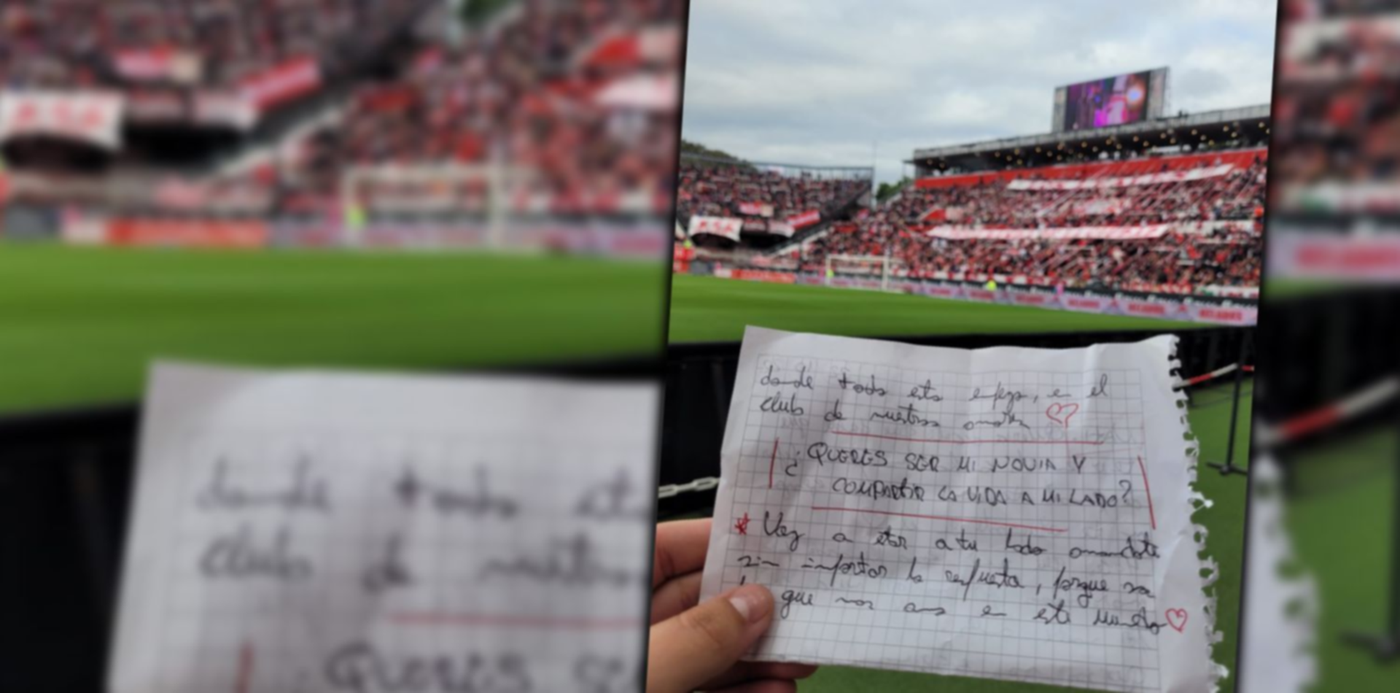 donde todo esto empezo, en el
club de nuestros amores
¿QUERES SER MI NOVIA Y
COMPARTIR LA VIDA A MI LADO?
* Voy a estar a tu lado amandote
sin importar la respuesta, porque sos
que mas amo en este mundo